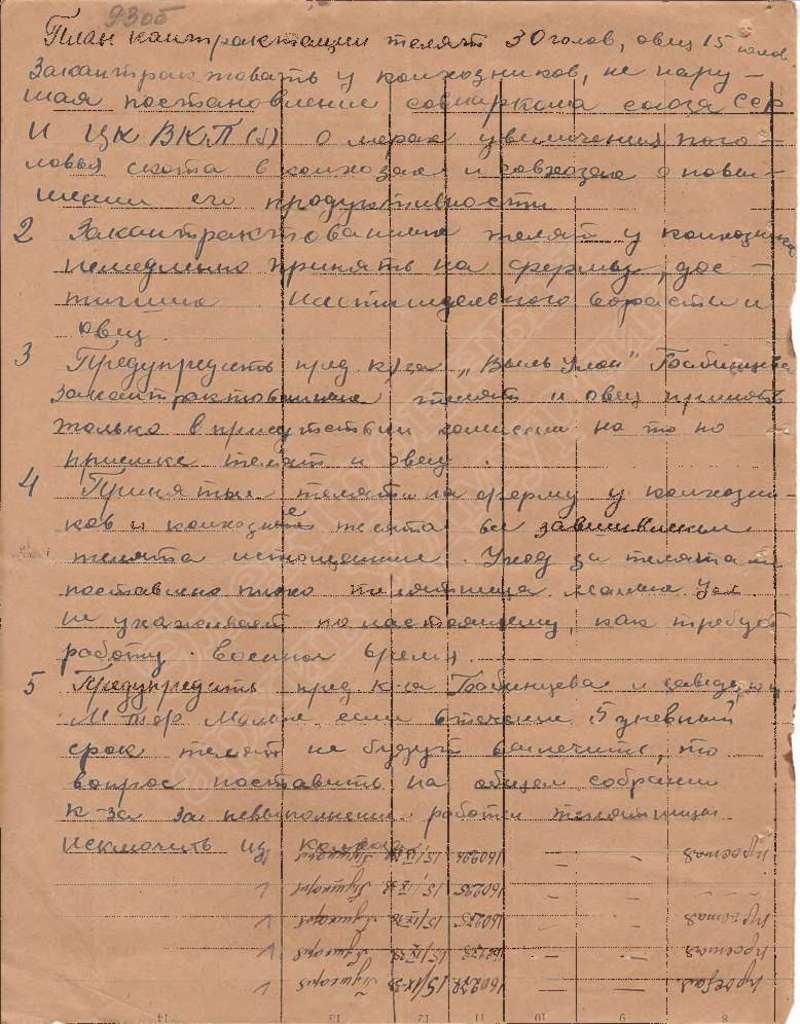 930б
План кантрактации телят 30 голов, овец 15 голов
Закантрактовать у колхозников, не нару-
шая постановление совнаркома союза ССР
И ЦК ВКП(б) о мерах увеличения пого-
ловья скота в колхозах и совхозах о повы-
шении его продуктивности
2 Закантрактованные телят у колхозника
немедленно принять на фермы, дос-
тигшие возрасти и
овец.
3 Предупредить пред. к/за „Выль улон" Бабинцева
закантрактованные телят и овец принять
только в присутствии комиссии на то по
приемке телят и овец.
4 Принятые телята на ферму у колхозни-
ков и колхозные телята все завшивлены
телята истощенные. Уход за телятами
поставлено плохо телятница
не ухаживает по настоящему, как требует
работу военное время.
5 Предупредить пред. к-за Бабинцева и заведующ
МТФ если в течение 5 дневный
срок телят не будут вылечить, то
вопрос поставить на общем собрании
К-за за невыполнение работы телятницы
исключить из колхоза
простая — — 160294 15/IX-38 1
— — 160285 15/IX-38 1
простая — — 160275 15/IX-38 1
простая — — 15/IX-38 1
простая — — 160272 15/IX-38 1
8 9 10 11 12 13 14